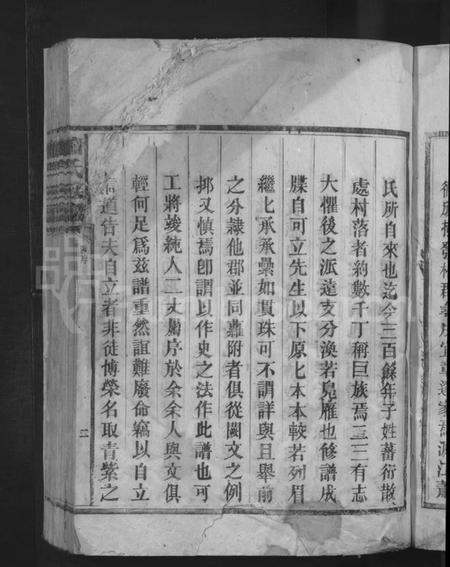 氏所自來也迄今三百餘年子姓蕃衍散
處村落者約數千丁稱巨族焉二三有志
大懼後之派遠支分渙若鳧雁也修譜成
牒自可立先生以下原匕本本較若列眉
繼匕承承纍如貫珠可不謂詳與且舉前
之分隸他郡並同譜附者俱從闕文之例
抑又慎焉卽謂以作史之法作此譜也可
工將竣統人二丈屬序於余余人與文俱
輕何足爲茲譜重然誼難廢命竊以自立
道告夫自立者非徒博榮名取青紫之
二